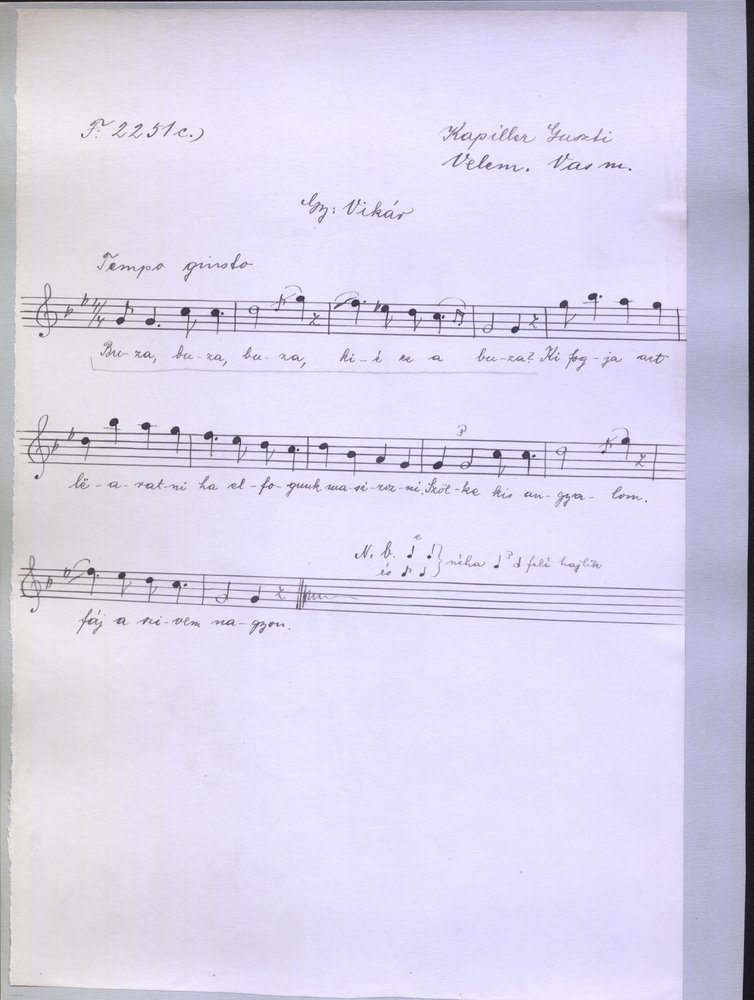 F. 2251 c.)
Kapiller Guszti
Velem. Vas m.
Gy: Vikár
Tempo giusto
4/4
Bu-za, bu-za, bu-za, ki-é ez a bu-za? Ki fog-ja azt
lë-a-rat-ni ha el-fo-gunk ma-si-roz-ni. Szöl-ke kis an-gya-lom.
3
N. b.
és
néha
3
felé hajlik
fáj a szi-vem na-gyon.